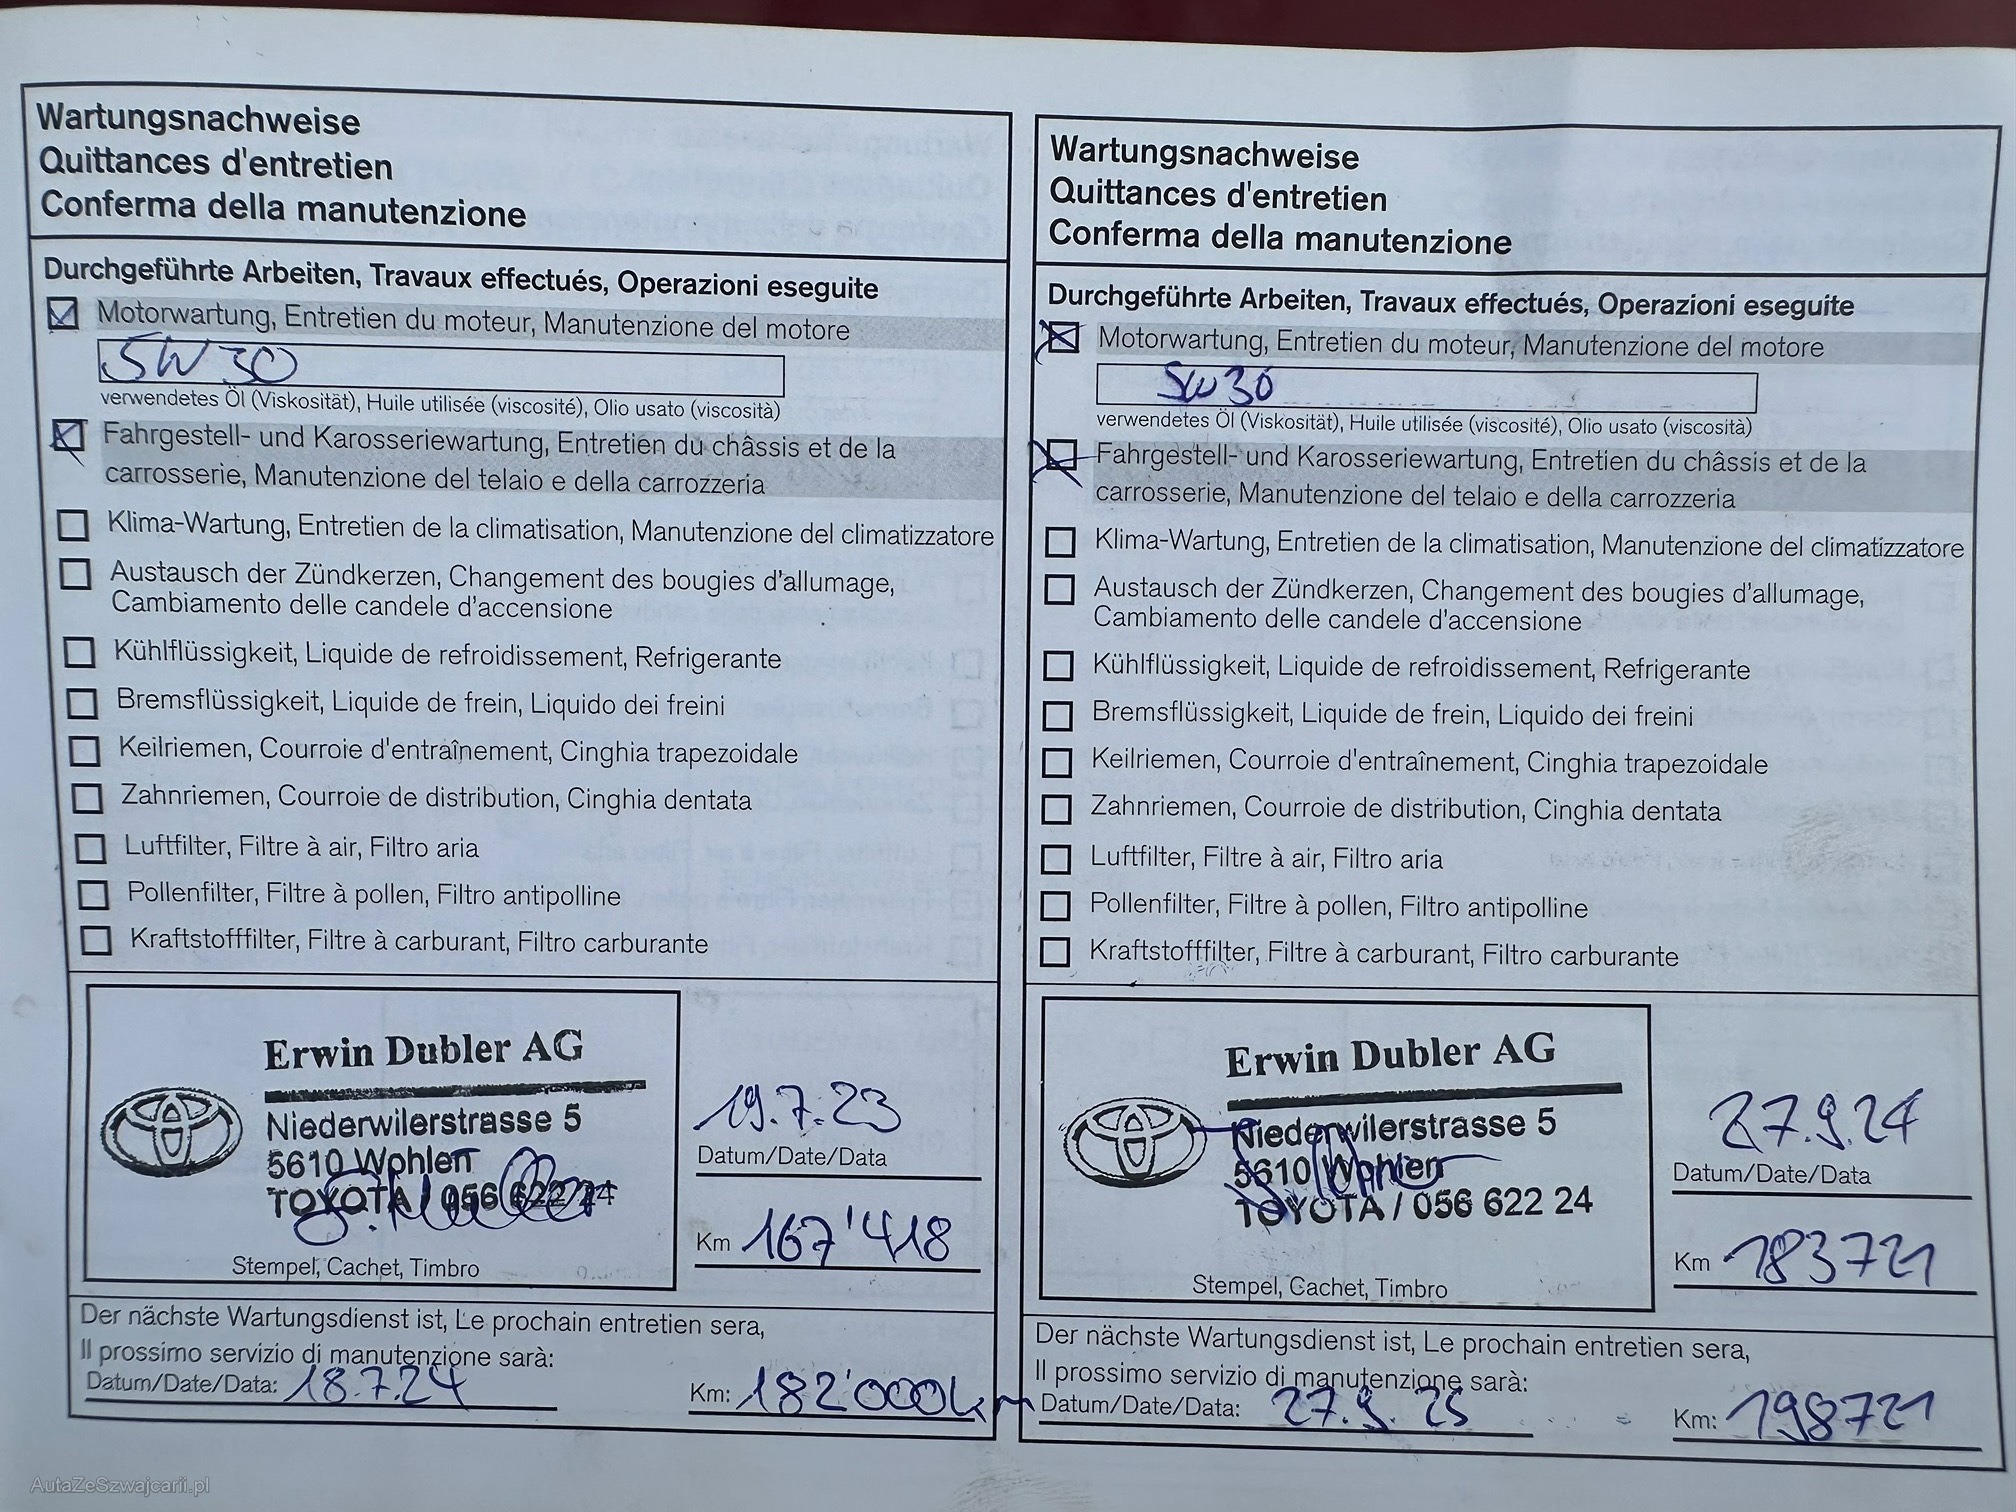 Wartungsnachweise
Quittances d'entretien
Conferma della manutenzione
Durchgeführte Arbeiten, Travaux effectués, Operazioni eseguite
Motorwartung, Entretien du moteur, Manutenzione del motore
5W30
verwendetes Öl (Viskosität), Huile utilisée (viscosité), Olio usato (viscosità)
Fahrgestell- und Karosseriewartung, Entretien du châssis et de la
carrosserie, Manutenzione del telaio e della carrozzeria
Klima-Wartung, Entretien de la climatisation, Manutenzione del climatizzatore
Austausch der Zündkerzen, Changement des bougies d'allumage,
Cambiamento delle candele d'accensione
Kühlflüssigkeit, Liquide de refroidissement, Refrigerante
Bremsflüssigkeit, Liquide de frein, Liquido dei freini
Keilriemen, Courroie d'entraînement, Cinghia trapezoidale
Zahnriemen, Courroie de distribution, Cinghia dentata
Luftfilter, Filtre à air, Filtro aria
Pollenfilter, Filtre à pollen, Filtro antipolline
Kraftstofffilter, Filtre à carburant, Filtro carburante
Erwin Dubler AG
Niederwilerstrasse 5
5610 Wohlen
TOYOTA / 056 622 24
Stempel, Cachet, Timbro
19.7.23
Datum/Date/Data
Km 167'418
Der nächste Wartungsdienst ist, Le prochain entretien sera,
Il prossimo servizio di manutenzione sarà:
Datum/Date/Data: 18.7.24 Km: 182'000km
Wartungsnachweise
Quittances d'entretien
Conferma della manutenzione
Durchgeführte Arbeiten, Travaux effectués, Operazioni eseguite
Motorwartung, Entretien du moteur, Manutenzione del motore
5W30
verwendetes Öl (Viskosität), Huile utilisée (viscosité), Olio usato (viscosità)
Fahrgestell- und Karosseriewartung, Entretien du châssis et de la
carrosserie, Manutenzione del telaio e della carrozzeria
Klima-Wartung, Entretien de la climatisation, Manutenzione del climatizzatore
Austausch der Zündkerzen, Changement des bougies d'allumage,
Cambiamento delle candele d'accensione
Kühlflüssigkeit, Liquide de refroidissement, Refrigerante
Bremsflüssigkeit, Liquide de frein, Liquido dei freini
Keilriemen, Courroie d'entraînement, Cinghia trapezoidale
Zahnriemen, Courroie de distribution, Cinghia dentata
Luftfilter, Filtre à air, Filtro aria
Pollenfilter, Filtre à pollen, Filtro antipolline
Kraftstofffilter, Filtre à carburant, Filtro carburante
Erwin Dubler AG
Niederwilerstrasse 5
5610 Wohlen
TOYOTA / 056 622 24
Stempel, Cachet, Timbro
27.9.24
Datum/Date/Data
Km 183721
Der nächste Wartungsdienst ist, Le prochain entretien sera,
Il prossimo servizio di manutenzione sarà:
Datum/Date/Data: 27.9.25 Km: 198721
AutaZeSzwajcarii.pl